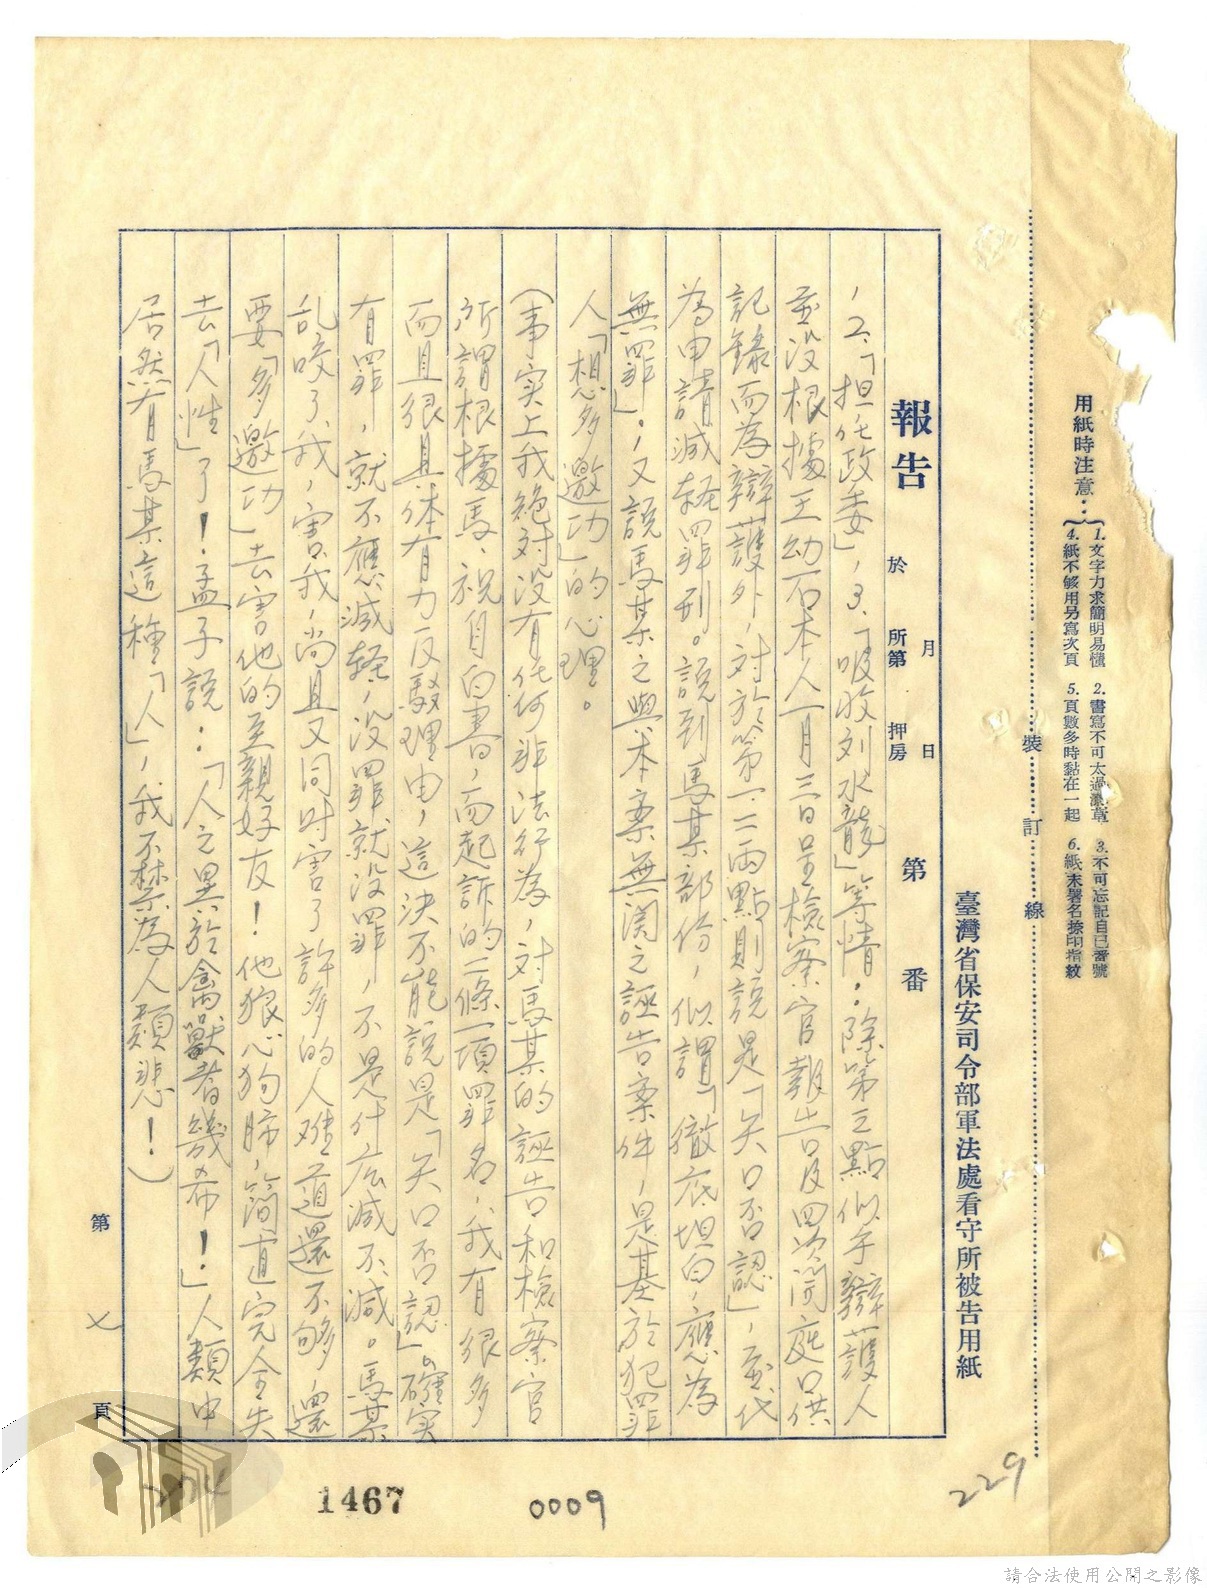 用紙時注意：{1.文字力求簡明易懂　2.書寫不可太過潦草　3.不可忘記自己番號
4.紙不够用另寫次頁　5.頁數多時黏在一起　6.紙末署名捺印指紋
裝訂線
臺灣省保安司令部軍法處看守所被告用紙
報告　於　月　日　所第　押房　第　番
，2.「担任政委」，3.「吸收刘水龍」等情：除第三點似乎辯護人
並没根據王幼石本人一月三日呈檢察官報告及四次開庭口供
記錄而為辯護外，対於第一、二兩點則說是「矢口否認」，並代
為申請減輕罪刑。說到馬某部份，似謂「徹底坦白，應為
無罪」。又說馬某之與本案無関之誣告案件，是基於犯罪
人「想多邀功」的心理。
（事实上我絶対没有任何非法行為，対馬某的誣告和檢察官
所謂根據馬、祝自白書，而起訴的二條一項罪名，我有很多
而且很具体有力反駁理由，這決不能說是「矢口否認」。確实
有罪，就不應減輕，没罪就没罪，不是什広減不減。馬某
乱咬了我，害我，尚且又同时害了許多的人难道還不够，還
要「多邀功」去害他的至親好友！他狼心狗肺，簡直完全失
去「人性」了！孟子說：「人之異於禽獸者幾希！」人類中
居然有馬某這種「人」，我不禁為人類悲！）
第七頁
1467
0009
229
請合法使用公開之影像